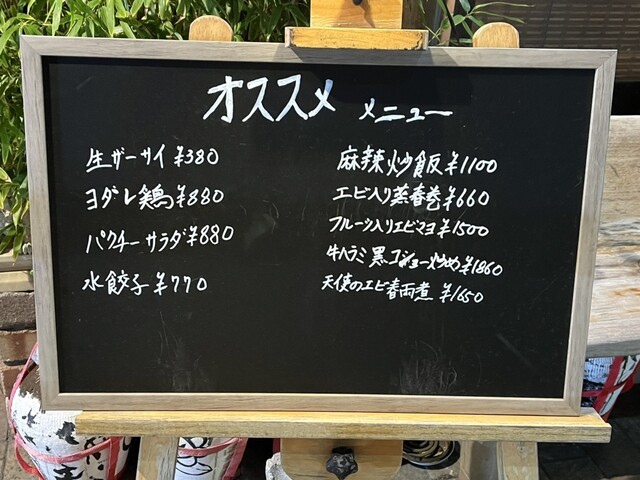 オススメ メニュー
生ザーサイ ¥380
ヨダレ鶏 ¥880
パクチーサラダ ¥880
水餃子 ¥770
麻辣炒飯 ¥1100
エビ入り蒸春巻 ¥660
フルーツ入りエビマヨ ¥1500
牛ハラミ黒コショー炒め ¥1860
天使のエビ春雨煮 ¥1650